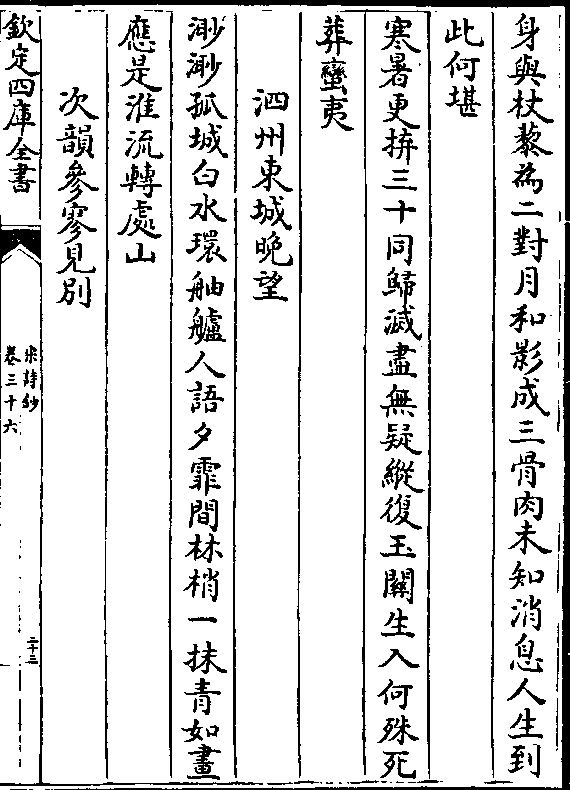 身與杖藜為二對月和影成三骨肉未知消息人生到
此何堪
寒暑更拚三十同歸滅盡無疑縱復玉關生入何殊死
葬蠻夷
泗州東城晚望
渺渺孤城白水環舳艫人語夕霏間林梢一抹青如畫
應是淮流轉處山
次韻參寥見别
欽定四庫全書
宋詩鈔
卷三十六
二十三